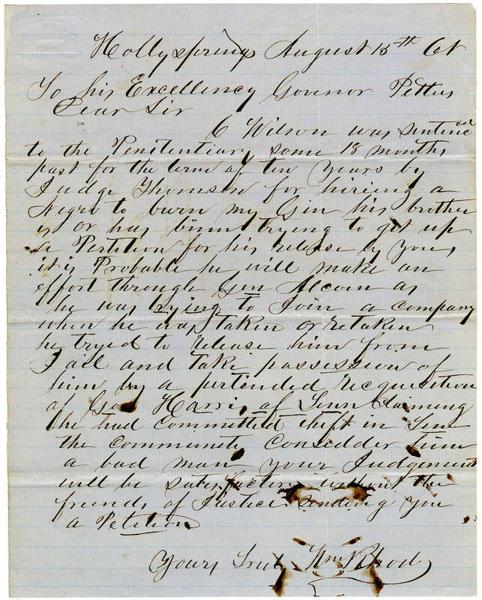 Hollysprings August 15th 61
To his Excellency Govenor Pettus
Dear Sir
C Wilson was sentenced
to the Penitentiary some 18 months
past for the term of ten years by
Judge Thomson for hireing a
Negro to burn my Gin his brother
is or has binn trying to get up
a Petition for his release of you,
it is Probable he will make an
effort through Gen Alcorn as
he was trying to Join a company
when he was taken or retaken
he tryed to release him from
Jail and take possession of
him by a pertended Recquisition
of Harris of Tenn Claiming
he had committed theft in Tenn
the community considder him
a bad man your Judgement
will be satisfactory without the
friends of Justice sending you
a Petition
Yours Truly Wm